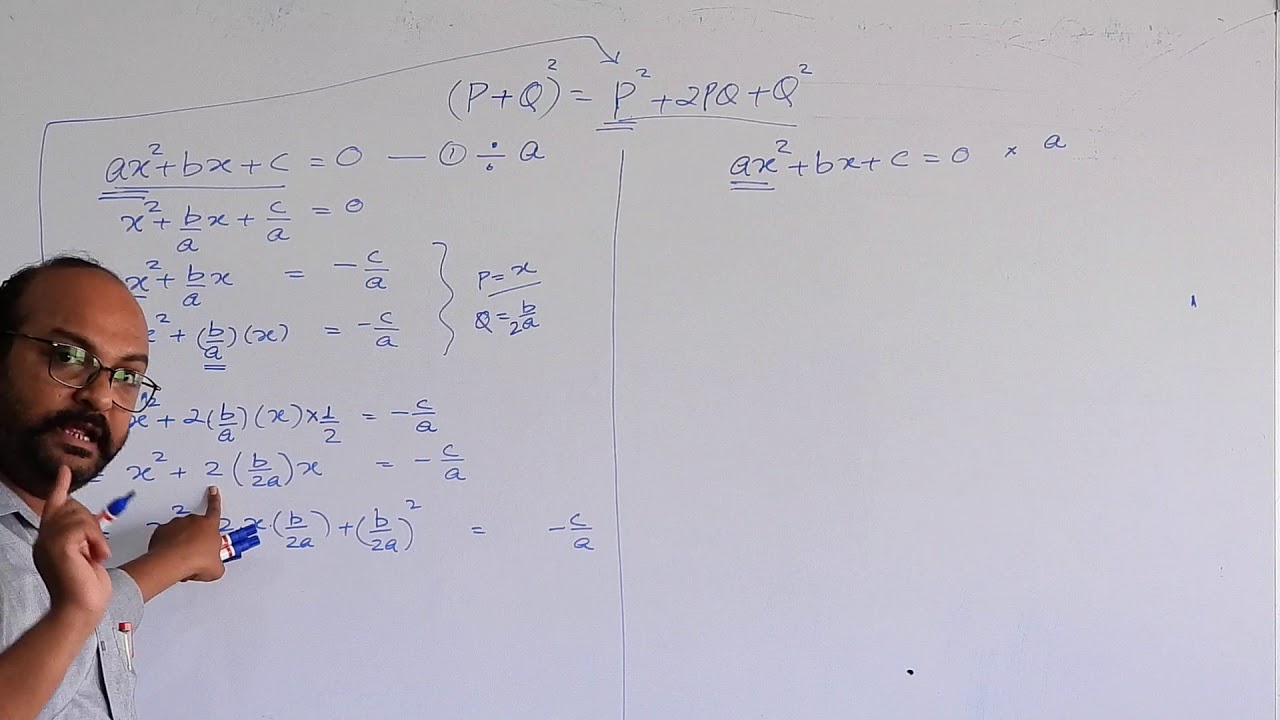 (P+Q)² = P² + 2PQ + Q²
ax² + bx + c = 0 — ① ÷ a
x² + b/a x + c/a = 0
x² + b/a x = -c/a
x² + (b/a)(x) = -c/a
P = x
Q = b/2a
x² + 2(b/a)(x) × 1/2 = -c/a
= x² + 2(b/2a)x = -c/a
= x² 2·x·(b/2a) + (b/2a)² = -c/a
ax² + bx + c = 0 × a